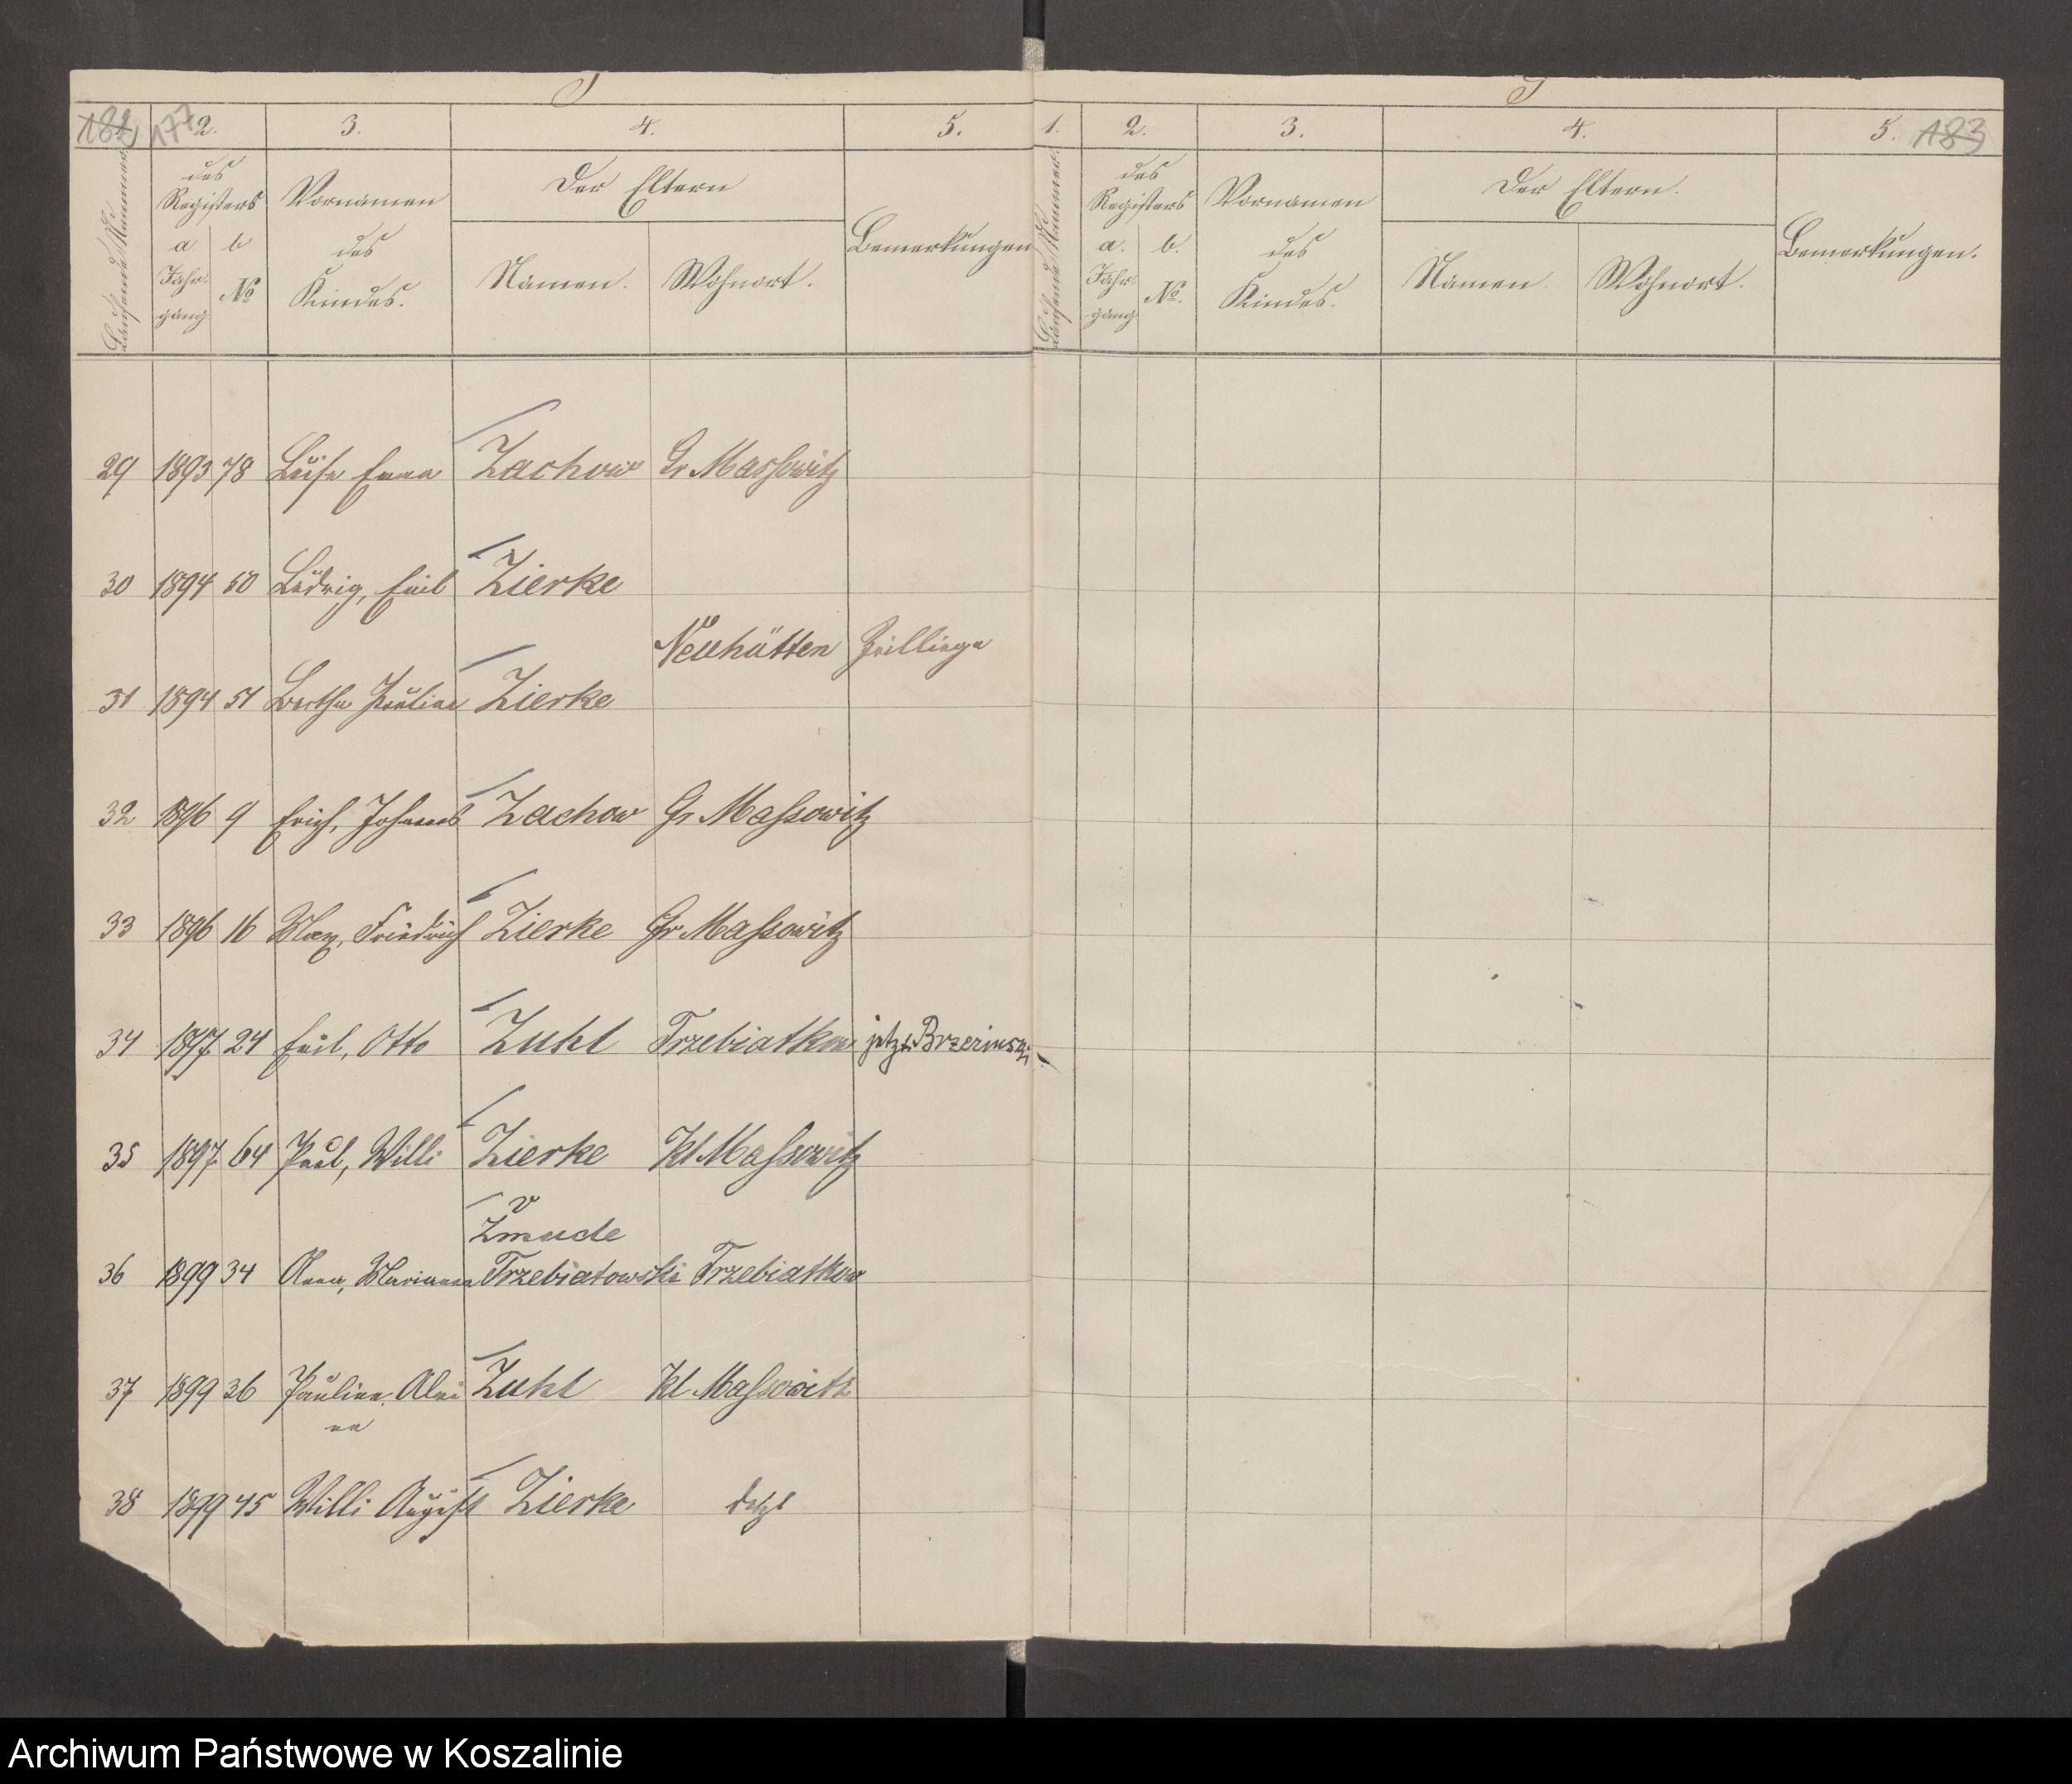 182 177 2. 3. 4. 5.
Laufende Nummer
des Registers
Vornamen des Kindes.
Der Eltern
Bemerkungen
a Jahrgang
b №
Namen. Wohnort.
29 1893 78 Luise Emma Zachow Gr Massowitz
30 1894 50 Ludwig, Emil Zierke
Neuhütten Zwillinge
31 1894 51 Bertha Pauline Zierke
32 1896 9 Erich, Johannes Zachow Gr Massowitz
33 1896 16 Max, Friedrich Zierke Gr Massowitz
34 1897 24 Emil, Otto Zuhl Trzebiatkow jetzt Brzezinski
35 1897 64 Paul, Willi Zierke Kl Massowitz
v
Zmude
36 1899 34 Anna, Marianna Trzebiatowski Trzebiatkow
37 1899 36 Pauline, Alwi Zuhl Kl Massowitz
ne
38 1899 45 Willi August Zierke
1. 2. 3. 4. 5. 183
Laufende Nummer.
des Registers
Vornamen des Kindes.
Der Eltern.
Bemerkungen.
a. Jahrgang
b. №.
Namen. Wohnort.
Archiwum Państwowe w Koszalinie